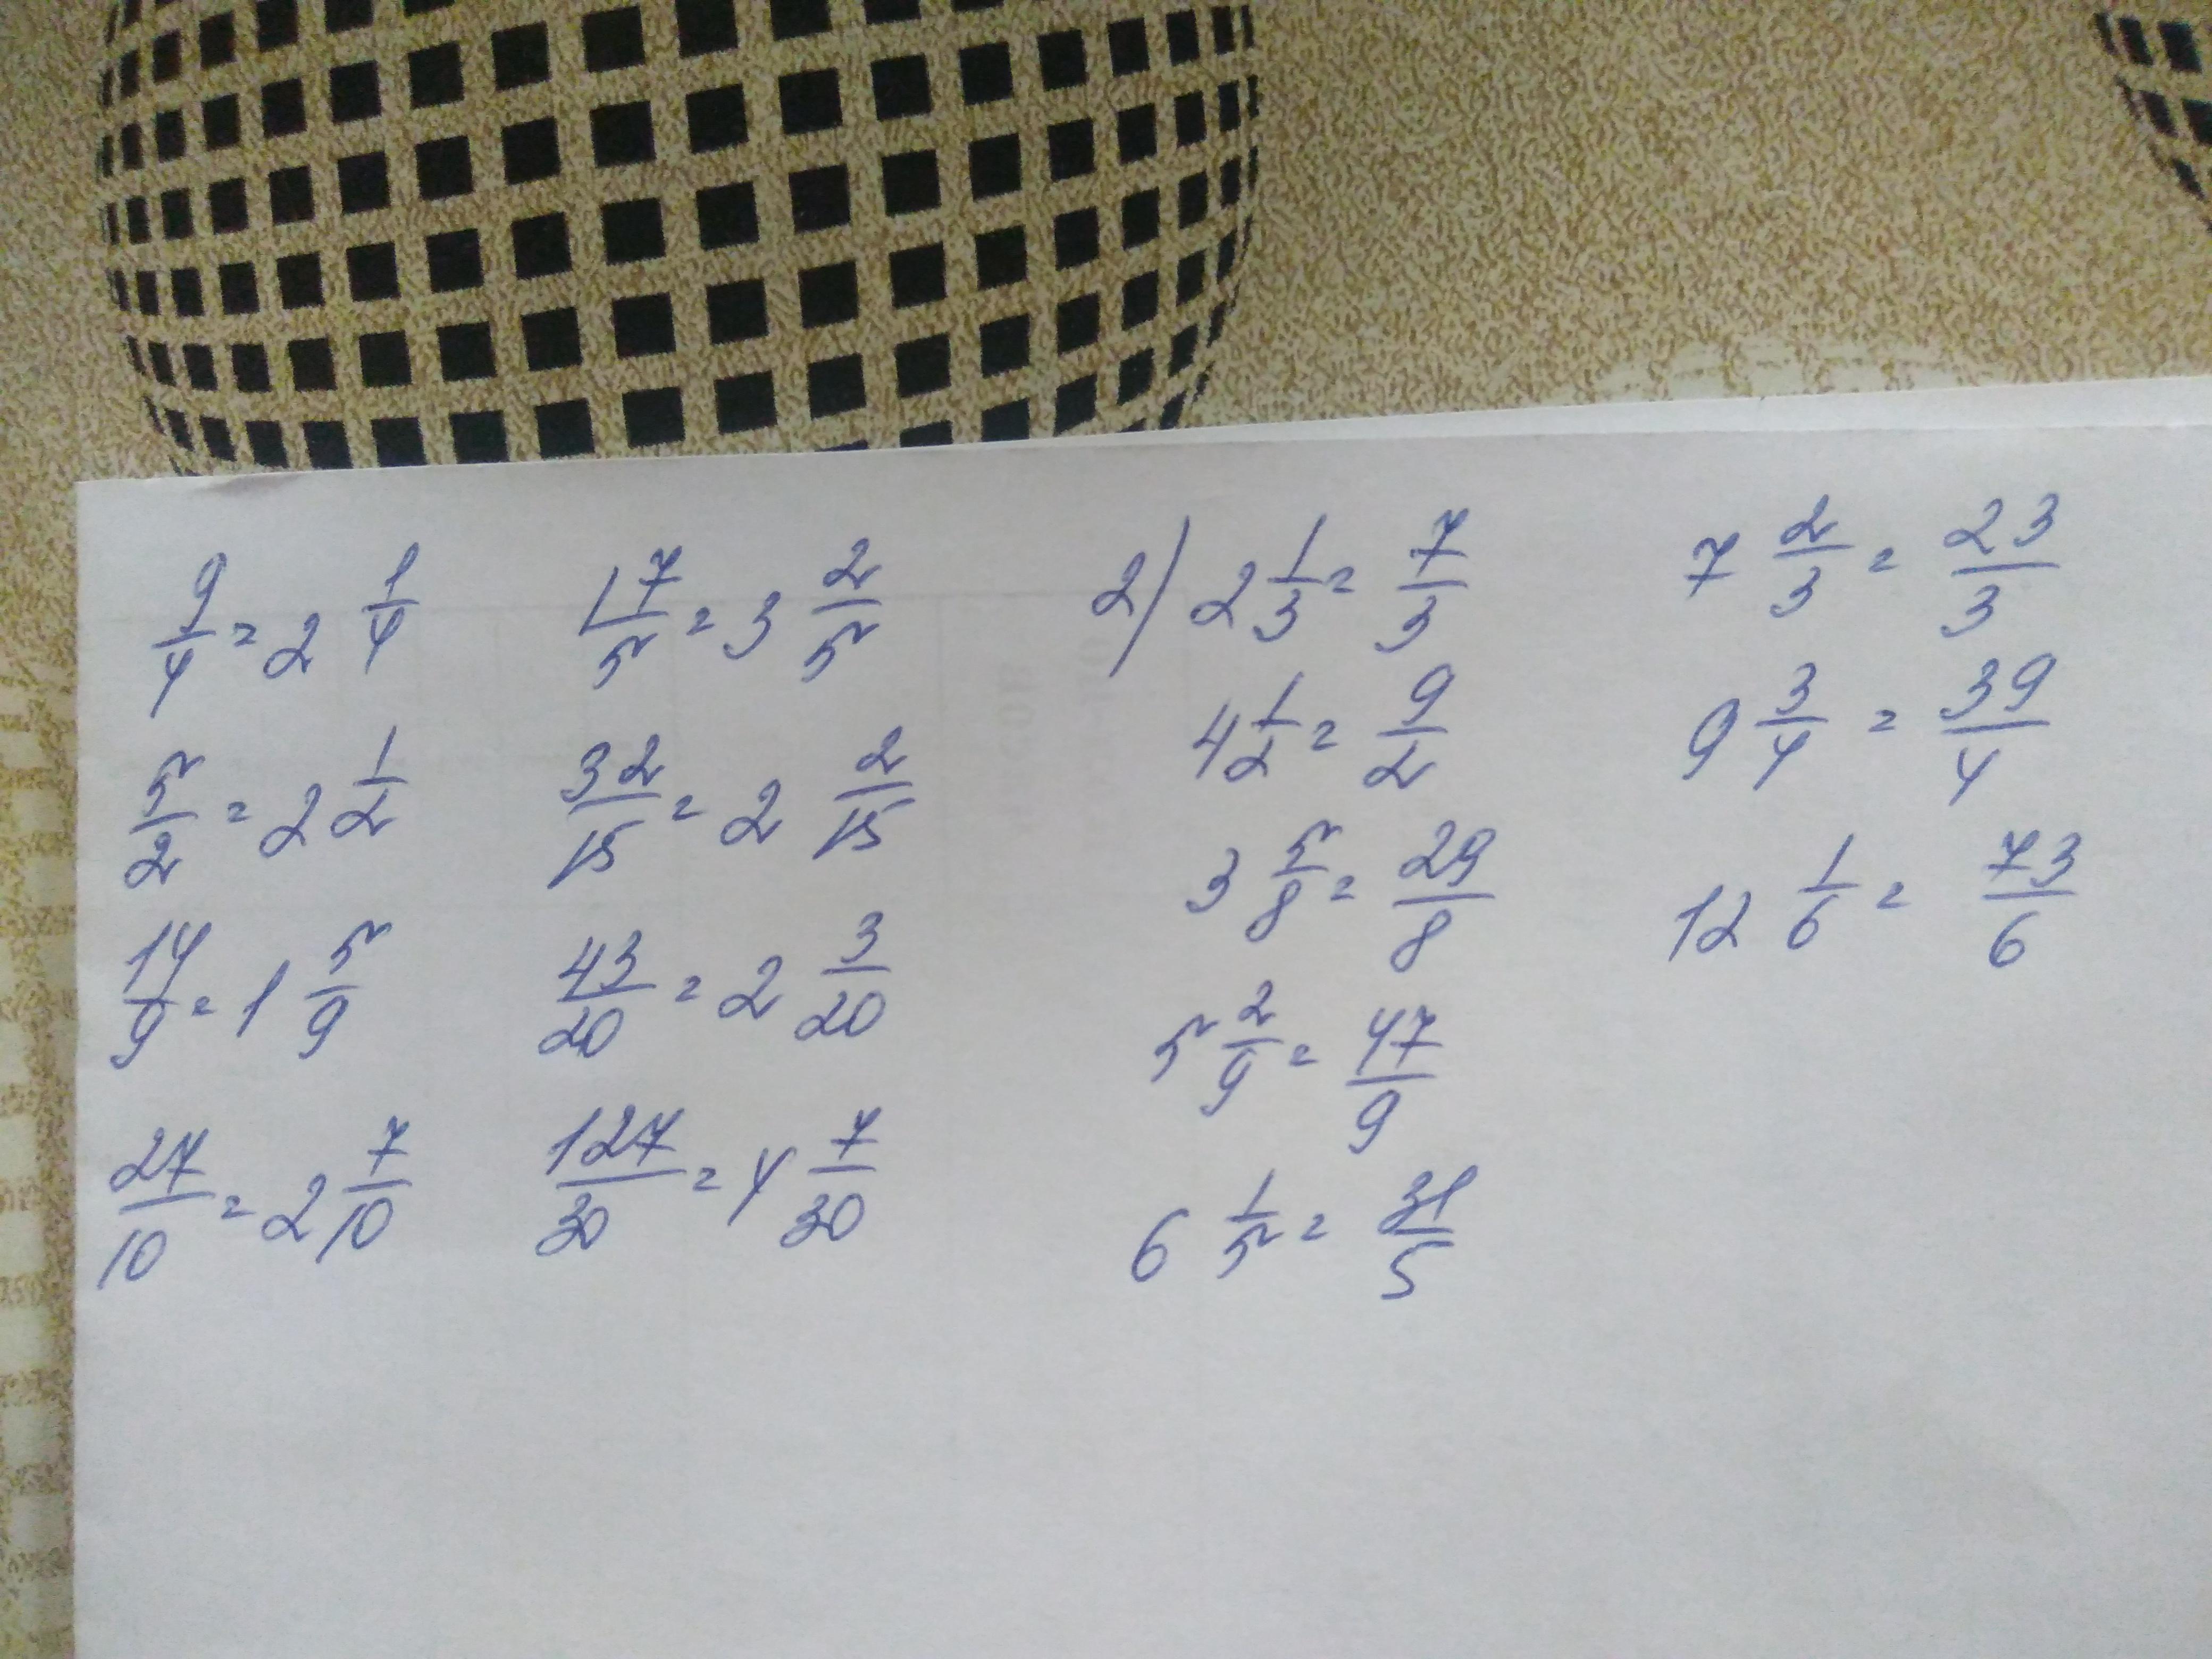 9/4 = 2 1/4
5/2 = 2 1/2
14/9 = 1 5/9
27/10 = 2 7/10
17/5 = 3 2/5
32/15 = 2 2/15
43/20 = 2 3/20
127/30 = 4 7/30
2) 2 1/3 = 7/3
4 1/2 = 9/2
3 5/8 = 29/8
5 2/9 = 47/9
6 1/5 = 31/5
7 2/3 = 23/3
9 3/4 = 39/4
12 1/6 = 73/6